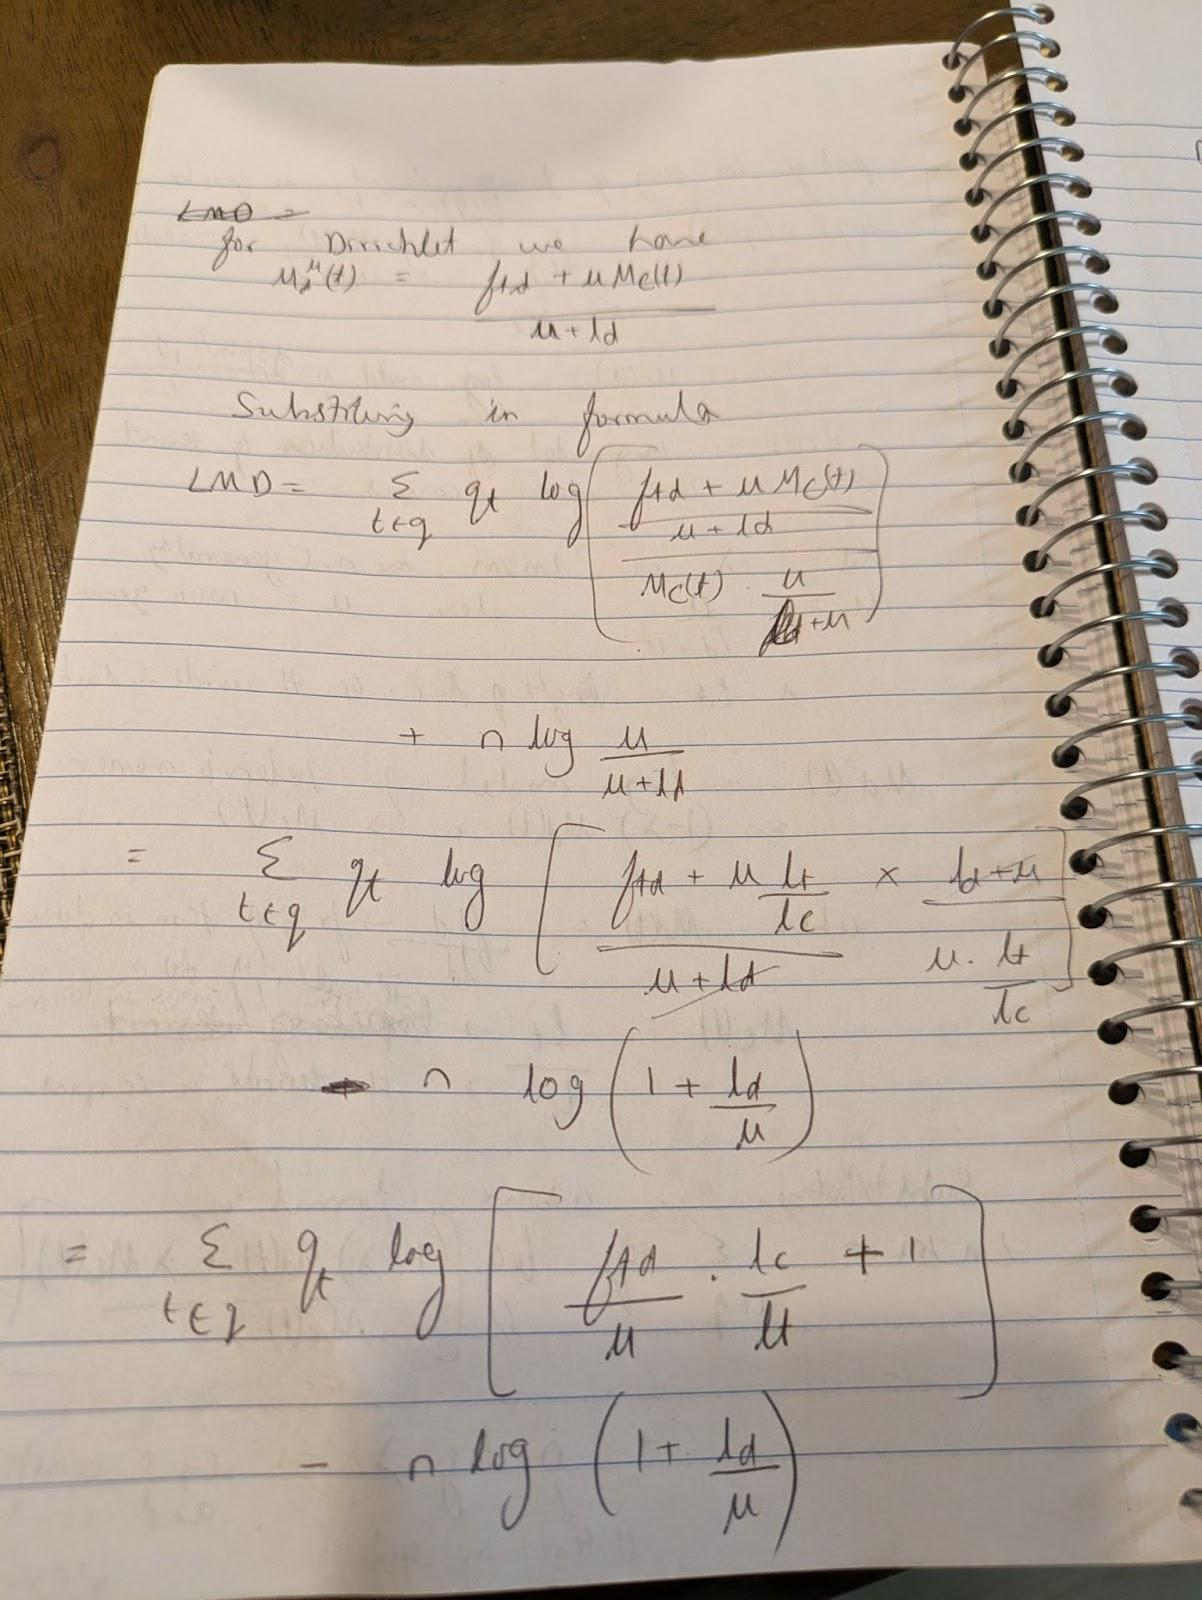 for Dirichlet we have
M_d^μ(t) = (f_td + μ M_c(t)) / (μ + l_d)
Substituting in formula
LMD = Σ_{t∈q} q_t log( ((f_td + μ M_c(t)) / (μ + l_d)) / (M_c(t) · μ / (l_d + μ)) )
+ n log μ / (μ + l_d)
= Σ_{t∈q} q_t log [ (f_td + μ l_t / l_c) / (μ + l_d) × (l_d + μ) / (μ · l_t / l_c) ]
- n log (1 + l_d / μ)
= Σ_{t∈q} q_t log [ f_td / μ · l_c / l_t + 1 ]
- n log (1 + l_d / μ)